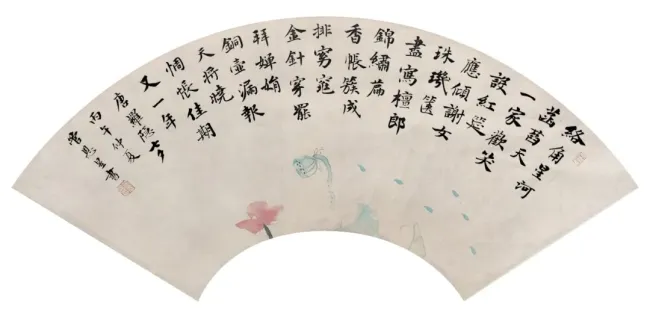 絡角星河
菡萏天
一家歡笑
設紅筵
應傾謝女
珠璣篋
盡寫檀郎
錦繡篇
香帳簇成
排窈窕
金針穿罷
拜嬋娟
銅壺漏報
天將曉
惆悵佳期
又一年
唐羅隱七夕
丙午仲夏
書